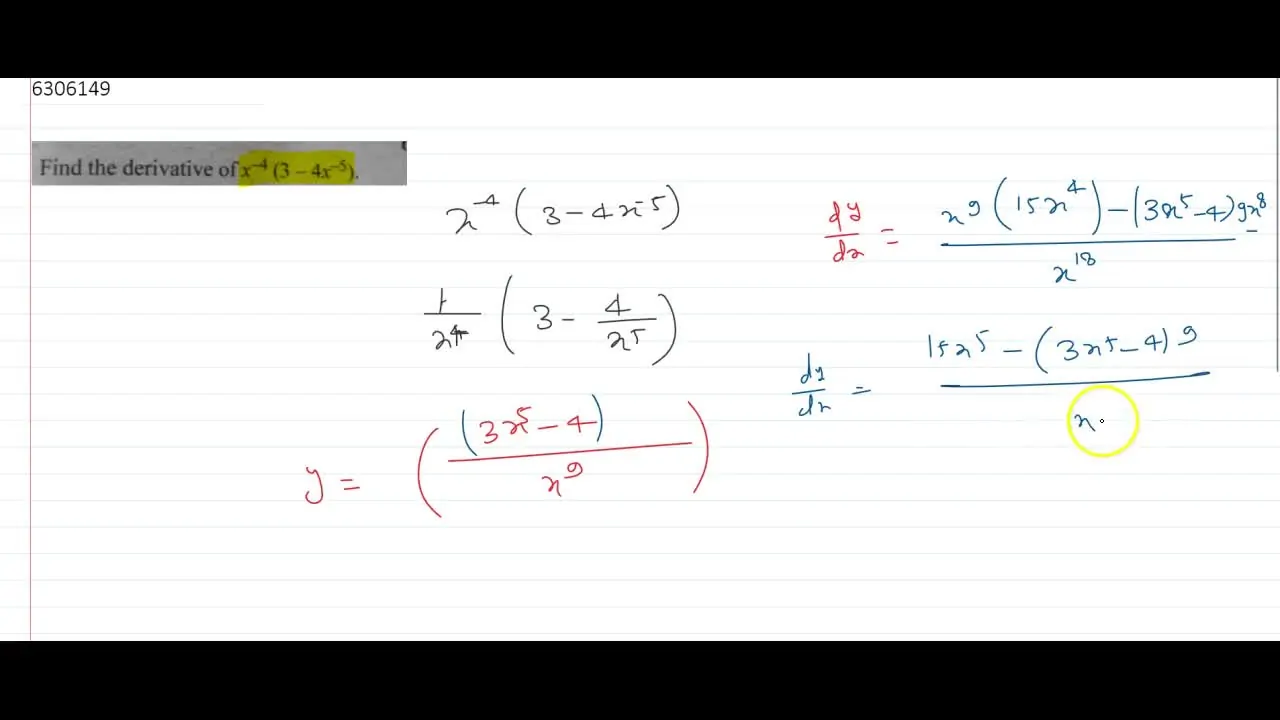 6306149
Find the derivative of x⁻⁴ (3 – 4x⁻⁵).
x⁻⁴ (3 - 4x⁻⁵)
1/x⁴ (3 - 4/x⁵)
y = ((3x⁵ - 4)/x⁹)
dy/dx = (x⁹ (15x⁴) - (3x⁵ - 4) 9x⁸)/x¹⁸
dy/dx = (15x⁵ - (3x⁵ - 4) 9)/x